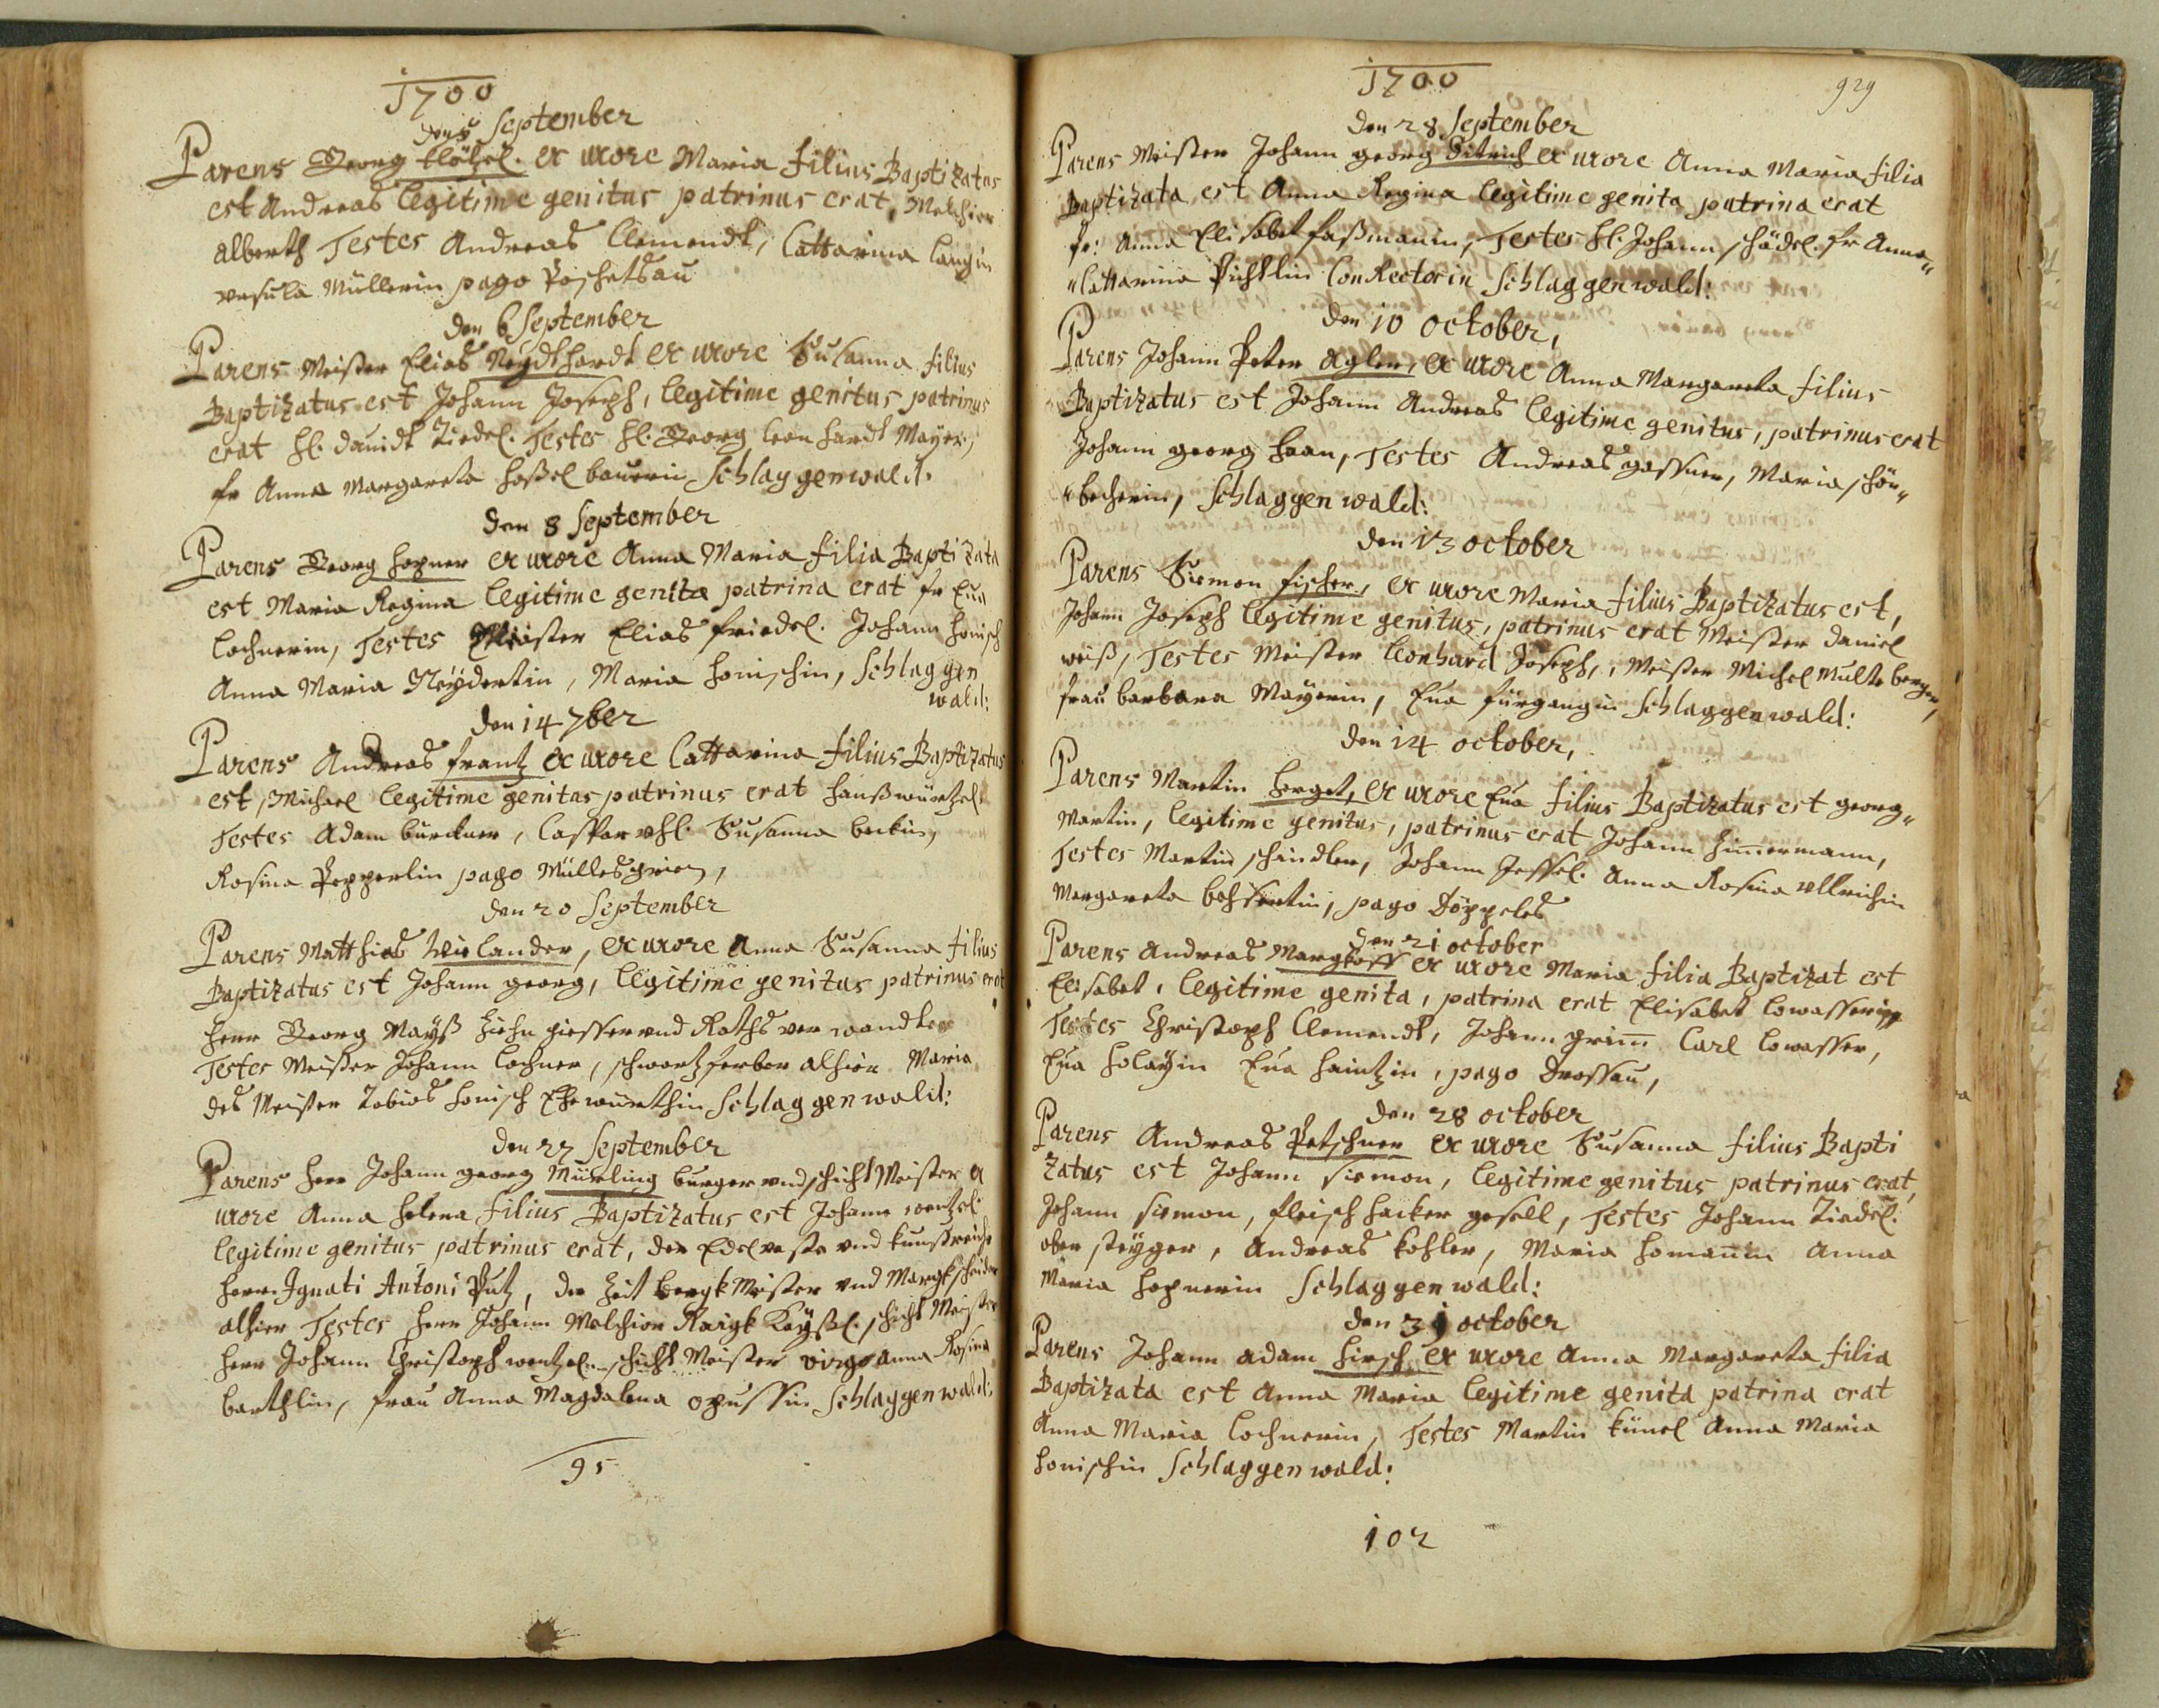 1700
den 5 September
Parens Georg Klözel. ex uxore Maria filius Baptizatus
est Andreas legitime genitus patrinus erat, Melchior
Alberth Testes Andreas Clemendt, Cattarina Langin
Ursula Müllerin pago Poschetzau
den 6 September
Parens Meister Elias Neydthardt ex uxore Susanna filius
Baptizatus est Johann Joseph, legitime genitus patrinus
erat H. Dauidt Ziedel. Testes H. Georg Leonhardt Mayer,
fr Anna Margareta Hoßelbauerin Schlaggenwald.
den 8 September
Parens Georg Hopner ex uxore Anna Maria filia Baptizata
est Maria Regina legitime genita patrina erat fr Eua
Lochnerin, Testes Meister Elias Friedel. Johann Honisch
Anna Maria Neydertin, Maria Honischin, Schlaggen
wald:
den 14 7ber
Parens Andreas Frantz ex uxore Cattarina filius Baptizatus
est Michael legitime genitus patrinus erat Hanß Würtzel.
Testes Adam Burckner, Caspar Uhl. Susanna Beckin,
Rosina Pepperlin pago Müllesgrien,
den 20 September
Parens Matthias Wielander, ex uxore Anna Susanna filius
Baptizatus est Johann Georg, legitime genitus patrinus erat
Herr Georg Mayß Ziehngiesser und Raths verwandter
Testes Meister Johann Lochner, schwartzferber alhier Maria
des Meister Tobias Honisch Ehewürthin Schlaggenwald:
den 27 September
Parens Herr Johann Georg Müerling burger und schicht Meister ex
uxore Anna Helena filius Baptizatus est Johann Wentzel.
legitime genitus patrinus erat, der Edelveste und Kunstreiche
Herr Ignati Antoni Putz, der Zeit Bergk Meister und Margkscheider
alhier Testes Herr Johann Melchior Kayßl. schicht Meister
Herr Johann Christoph Wentzel. schicht Meister virgo Anna Rosina
Barthlin, frau Anna Magdalena Opussin Schlaggenwald:
95
1700
929
den 28 September
Parens Meister Johann Georg Ditrich ex uxore Anna Maria filia
Baptizata est Anna Regina legitime genita patrina erat
fr: Anna Elisabet Faßmanin, Testes H. Johann Schödel. fr Anna„
„Cattarina Pichtlin ConRectorin Schlaggenwald:
den 10 october,
Parens Johann Peter Agler, ex uxore Anna Margareta filius
Baptizatus est Johann Andreas legitime genitus, patrinus erat
Johann Georg Haan, Testes Andreas Gossner, Maria Schön„
„becherin, Schlaggenwald:
den 13 october
Parens Siemon Fischer, ex uxore Maria filius Baptizatus est,
Johann Joseph legitime genitus, patrinus erat Meister Daniel
Weiß, Testes Meister Leonhard Joseph, Meister Michel Multeberger,
frau Barbara Mayerin, Eua Fürgangin Schlaggenwald:
den 14 october,
Parens Martin Herget, ex uxore Eua filius Baptizatus est Georg„
Martin, legitime genitus, patrinus erat Johann Zimmermann,
Testes Martin Schindler, Johann Jessel. Anna Rosina Ullrichin
Margareta Bohsertin, pago Töppeles
den 21 october
Parens Andreas Margkoff ex uxore Maria filia Baptizat est
Elisabet, legitime genita, patrina erat Elisabet Lowasserin
Testes Christoph Clemendt, Johann Grim Carl Lowasser,
Eua Holayin Eua Haintzin, pago Drossau,
den 28 october
Parens Andreas Petschner ex uxore Susanna filius Bapti
zatus est Johann Siemon, legitime genitus patrinus erat,
Johann Siemon, fleischhacker gesell, Testes Johann Ziedel.
ober steyger, Andreas Kohler, Maria Homanin Anna
Maria Hopnerin Schlaggenwald:
den 31 october
Parens Johann Adam Hirsch ex uxore Anna Margareta filia
Baptizata est Anna Maria legitime genita patrina erat
Anna Maria Lochnerin, Testes Martin Künel Anna Maria
Honischin Schlaggenwald:
102